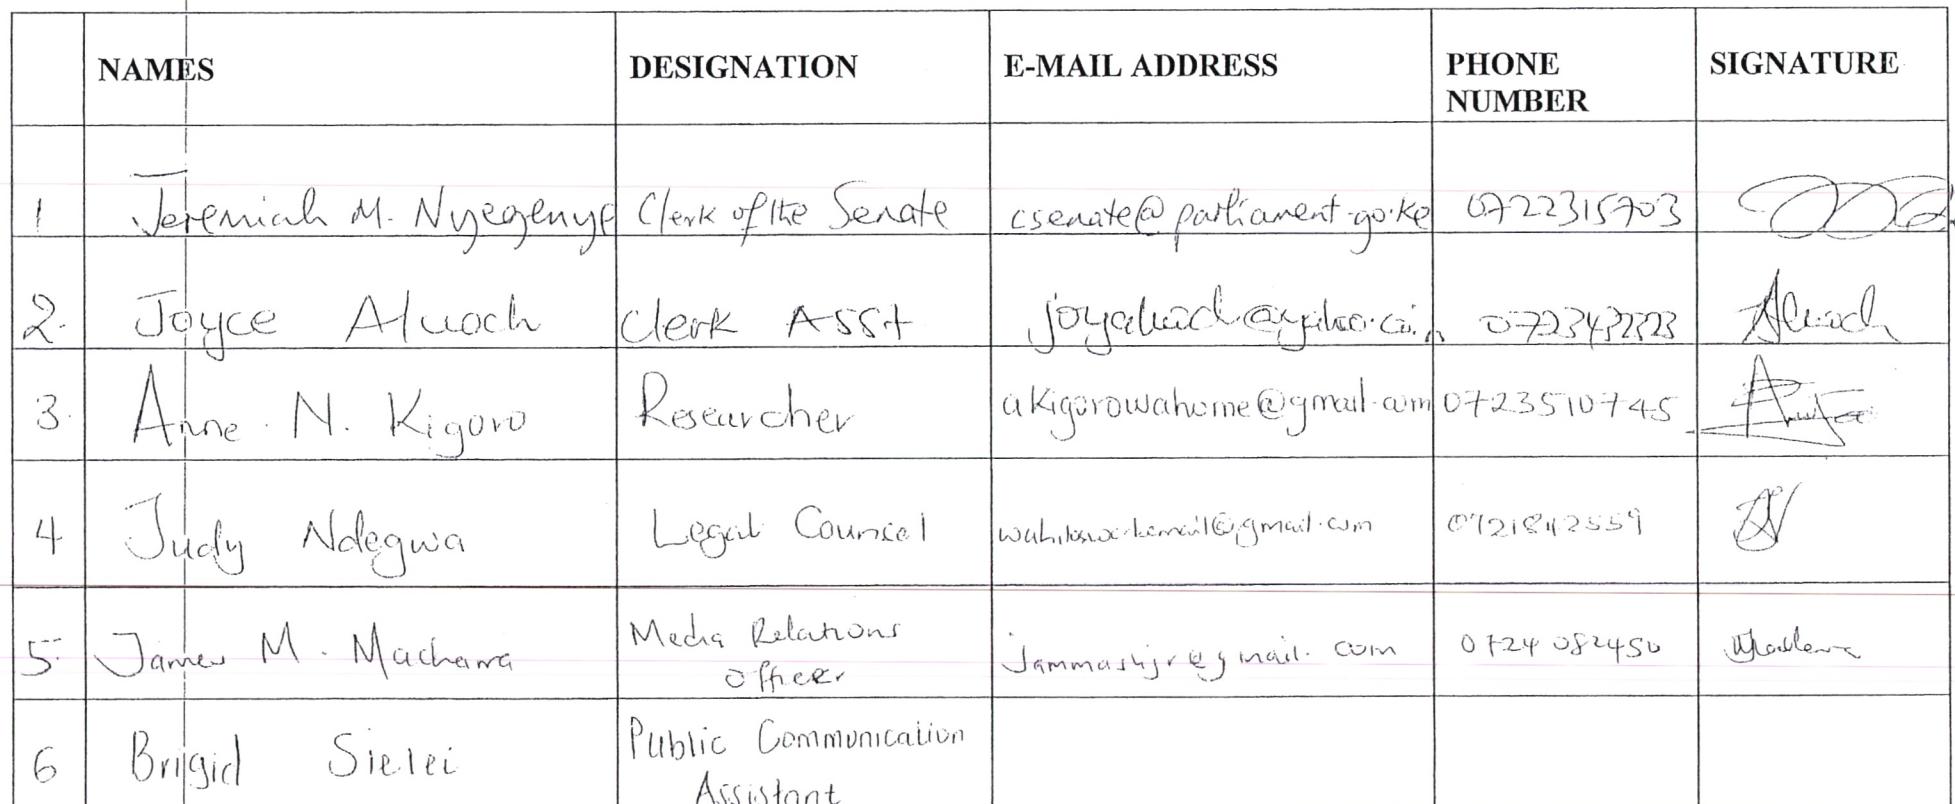 NAMES DESIGNATION E-MAIL ADDRESS PHONE NUMBER SIGNATURE
1 Jeremiah M. Nyegenye Clerk of the Senate csenate@parliament.go.ke 0722315703
2. Joyce Aluoch Clerk Asst
3. Anne N. Kigoro Researcher akigorowahome@gmail.com 0723510745
4 Judy Ndegwa Legal Counsel 0721842559
5. James M. Macharia Media Relations officer 0724 082450
6 Brigid Sielei Public Communication Assistant